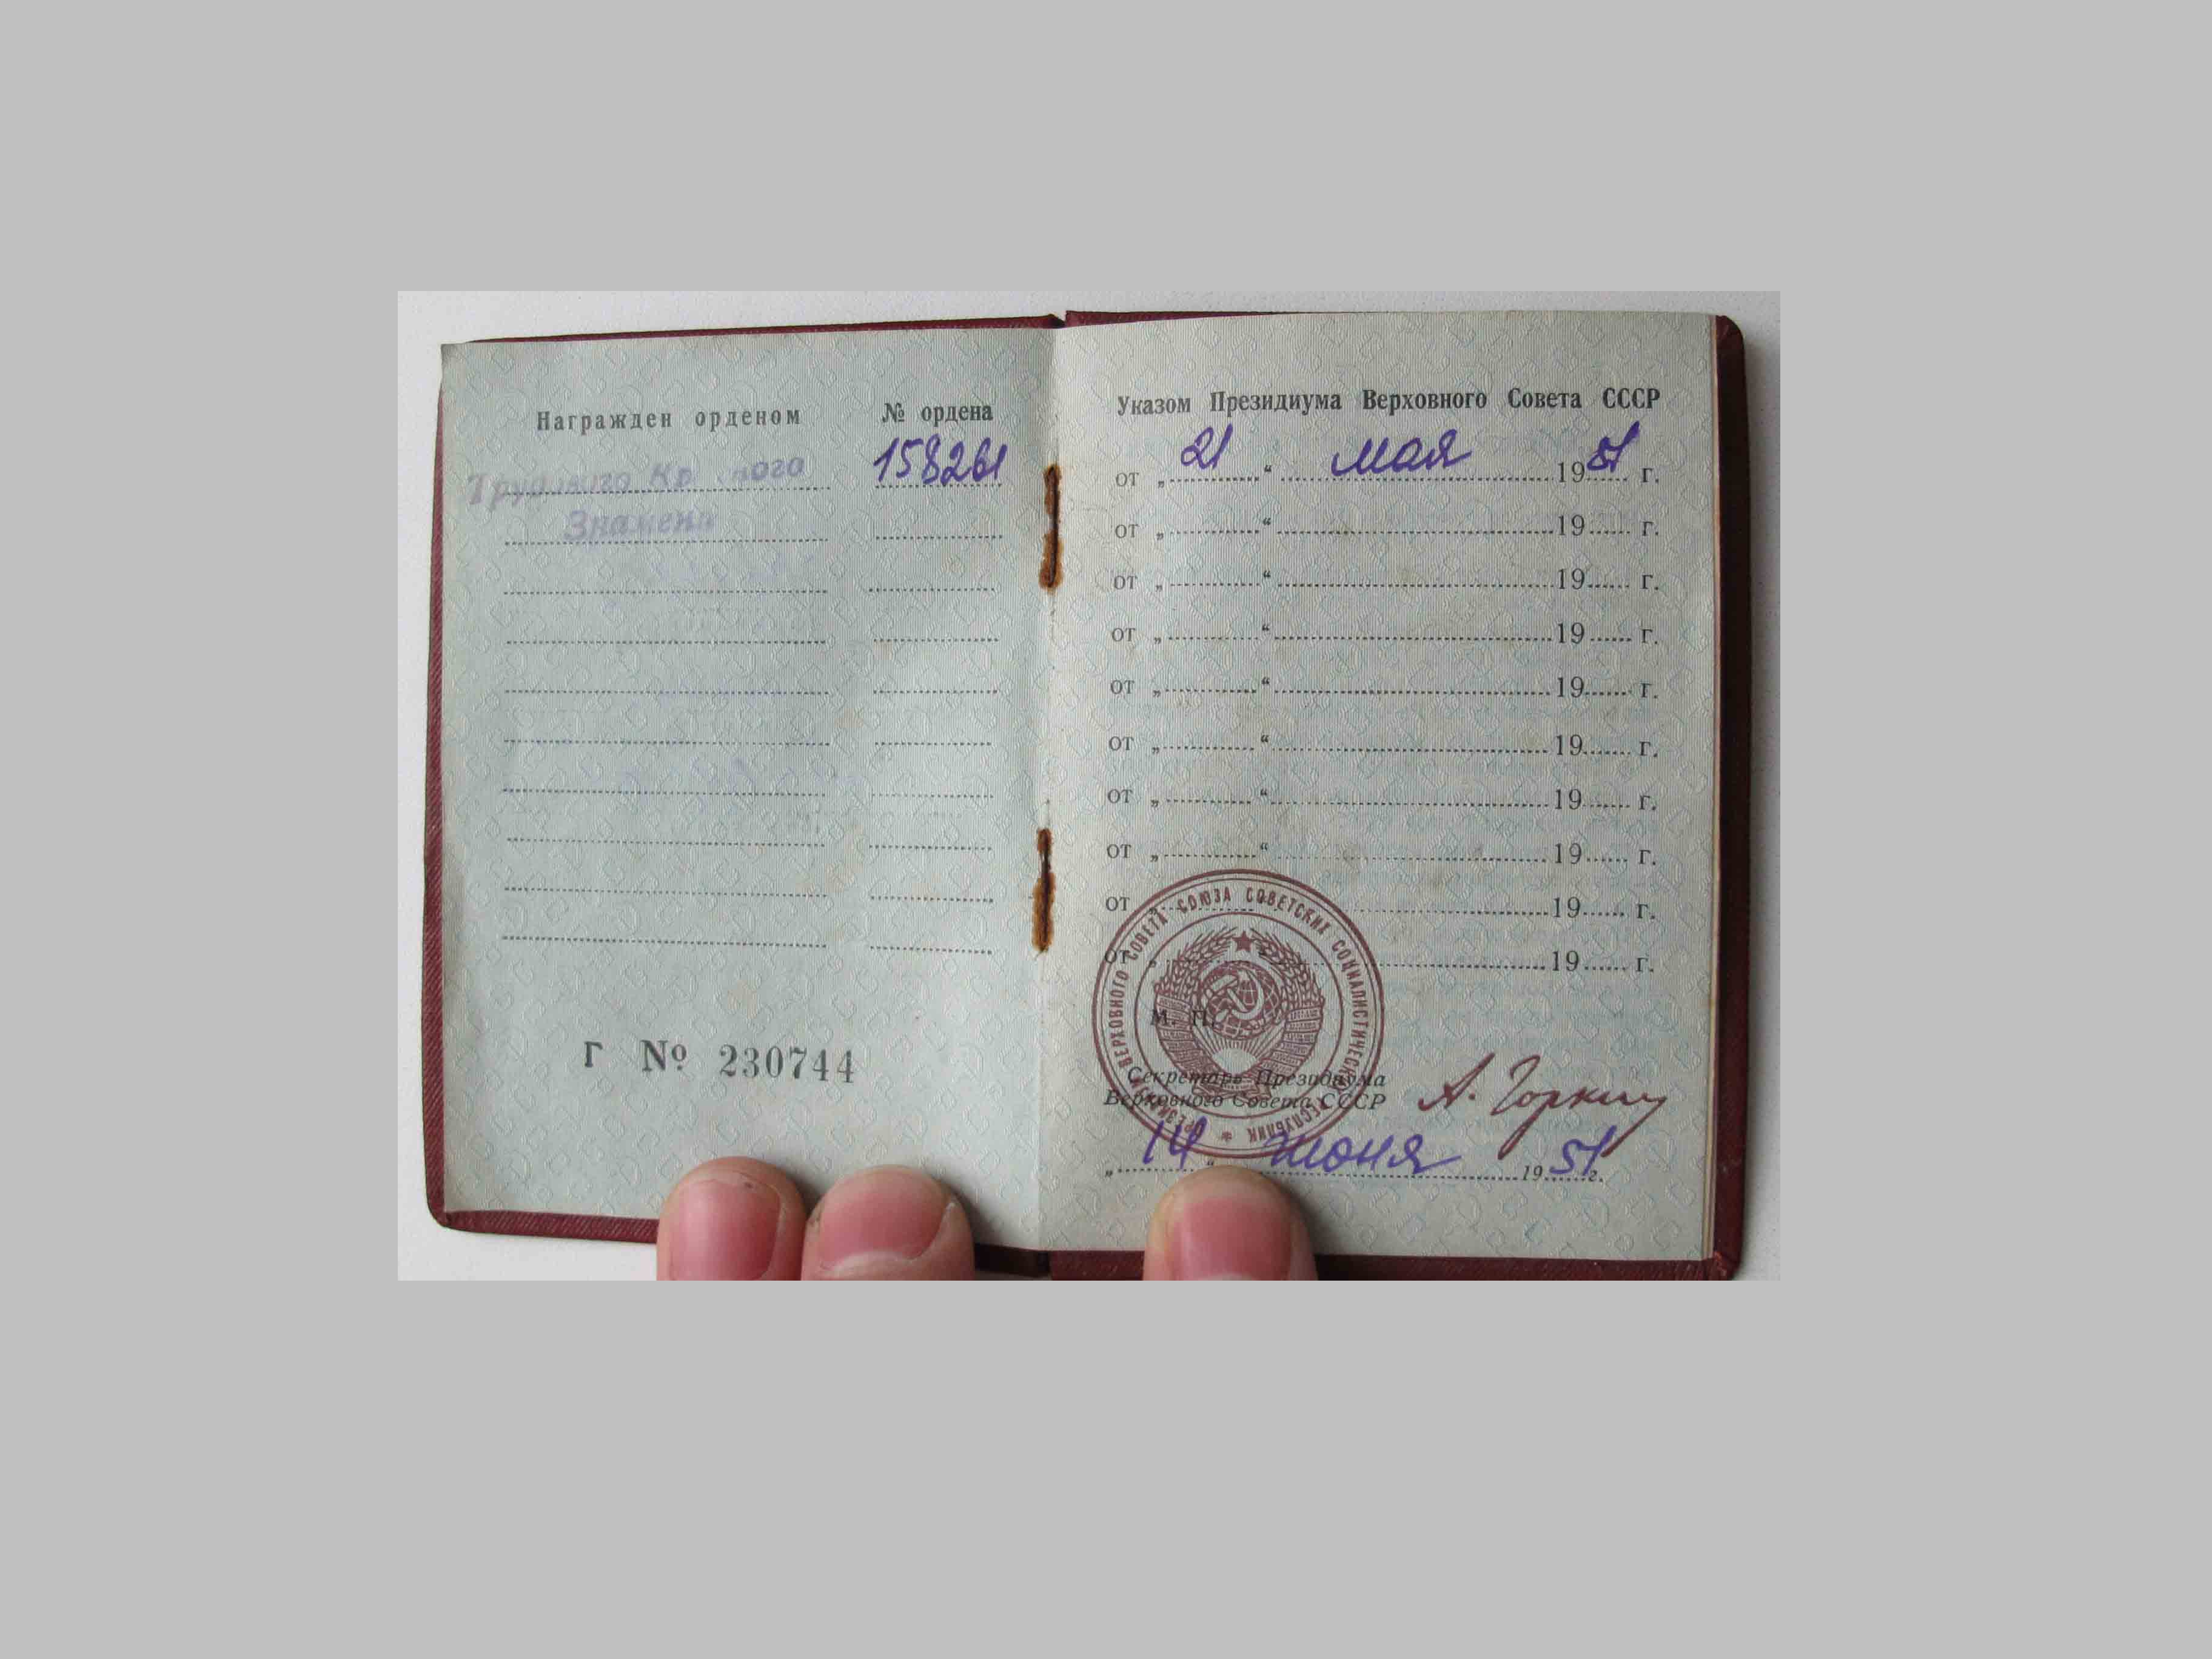 Награжден орденом № ордена
Трудового Кр ного 158261
Знамени
Г № 230744
Указом Президиума Верховного Совета СССР
от „21“ мая 1951 г.
от „ “ 19 г.
от „ “ 19 г.
от „ “ 19 г.
от „ “ 19 г.
от „ “ 19 г.
от „ “ 19 г.
от „ “ 19 г.
от „ “ 19 г.
от „ “ 19 г.
ПРЕЗИДИУМ ВЕРХОВНОГО СОВЕТА СОЮЗА СОВЕТСКИХ СОЦИАЛИСТИЧЕСКИХ РЕСПУБЛИК
М. П.
Секретарь Президиума
Верховного Совета СССР А. Горкин
„14“ июня 1951 г.